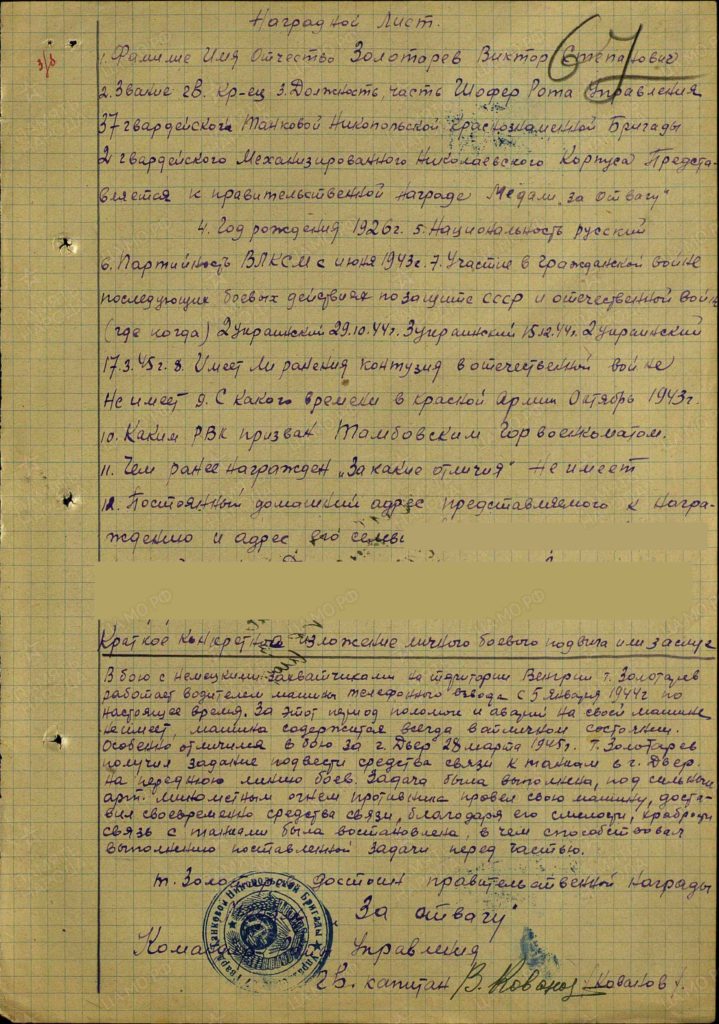 Наградной Лист.
67
3/б
1. Фамилие Имя Отчество Золотарев Виктор Степанович
2. Звание гв. Кр-ец 3. Должность, часть Шофер Рота Управления
37 гвардейской Танковой Никопольской краснознаменной Бригады
2 гвардейского Механизированного Николаевского Корпуса Предста-
вляется к правительственной награде Медали „за отвагу"
4. Год рождения 1926 г. 5. Национальность русский
6. Партийность ВЛКСМ с июня 1943 г. 7. Участие в гражданской войне
последующих боевых действиях по защите СССР и отечественной войне
(где когда) 2 украинский 29.10.44 г. 3 украинский 15.12.44 г. 2 украинский
17.3.45 г. 8. Имеет ли ранения контузия в отечественной войне
Не имеет 9. С какого времени в красной Армии Октябрь 1943 г.
10. Каким РВК призван Тамбовским Горвоенкоматом.
11. Чем ранее награжден „За какие отличия" Не имеет
12. Постоянный домашний адрес представляемого к Награ-
ждению и адрес его семьи
Краткое конкретное изложение личного боевого подвига или заслуг
В бою с немецкими захватчиками на территории Венгрии т. Золотарев
работает водителем машины телефонного взвода с 5 января 1944 г по
настоящее время. За этот период поломок и аварий на своей машине
не имеет, машина содержится всегда в отличном состоянии.
Особенно отличился в бою за г. Двер 28 марта 1945 г. Т. Золотарев
получил задание подвести средства связи к танкам в г. Двер.
на переднюю линию боев. Задача была выполнена, под сильным
арт. минометным огнем противника провел свою машину, доста-
вил своевременно средства связи, благодаря его смелости, храбрости
связь с танками была востановлена, в чем способствовал
выполнению поставленной задачи перед частью.
т. Золо достоин правительственной награды
За отвагу"
Коман Управления
Гв. капитан В. Ковалов /Ковалов/.